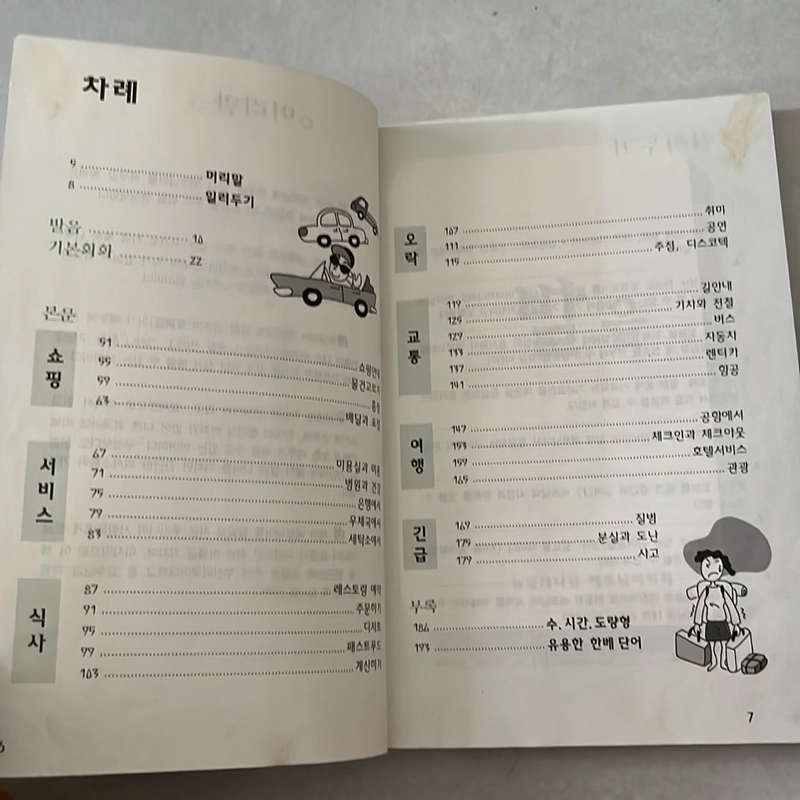 차례
5 머리말
8 일러두기
발음 16
기본회화 22
본문
쇼핑
51 쇼핑안내
55 물건고르기
59 흥정
63 배달과 포장
서비스
67 미용실과 미용
71 병원과 건강
75 은행에서
79 우체국에서
83 세탁소에서
식사
87 레스토랑 예약
91 주문하기
95 디저트
99 패스트푸드
103 계산하기
6
오락
107 취미
111 공연
115 주점, 디스코텍
교통
119 길안내
125 기차와 전철
129 버스
133 자동차
137 렌터카
141 항공
여행
147 공항에서
153 체크인과 체크아웃
159 호텔서비스
165 관광
긴급
169 질병
175 분실과 도난
179 사고
부록
186 수, 시간, 도량형
193 유용한 한베 단어
7